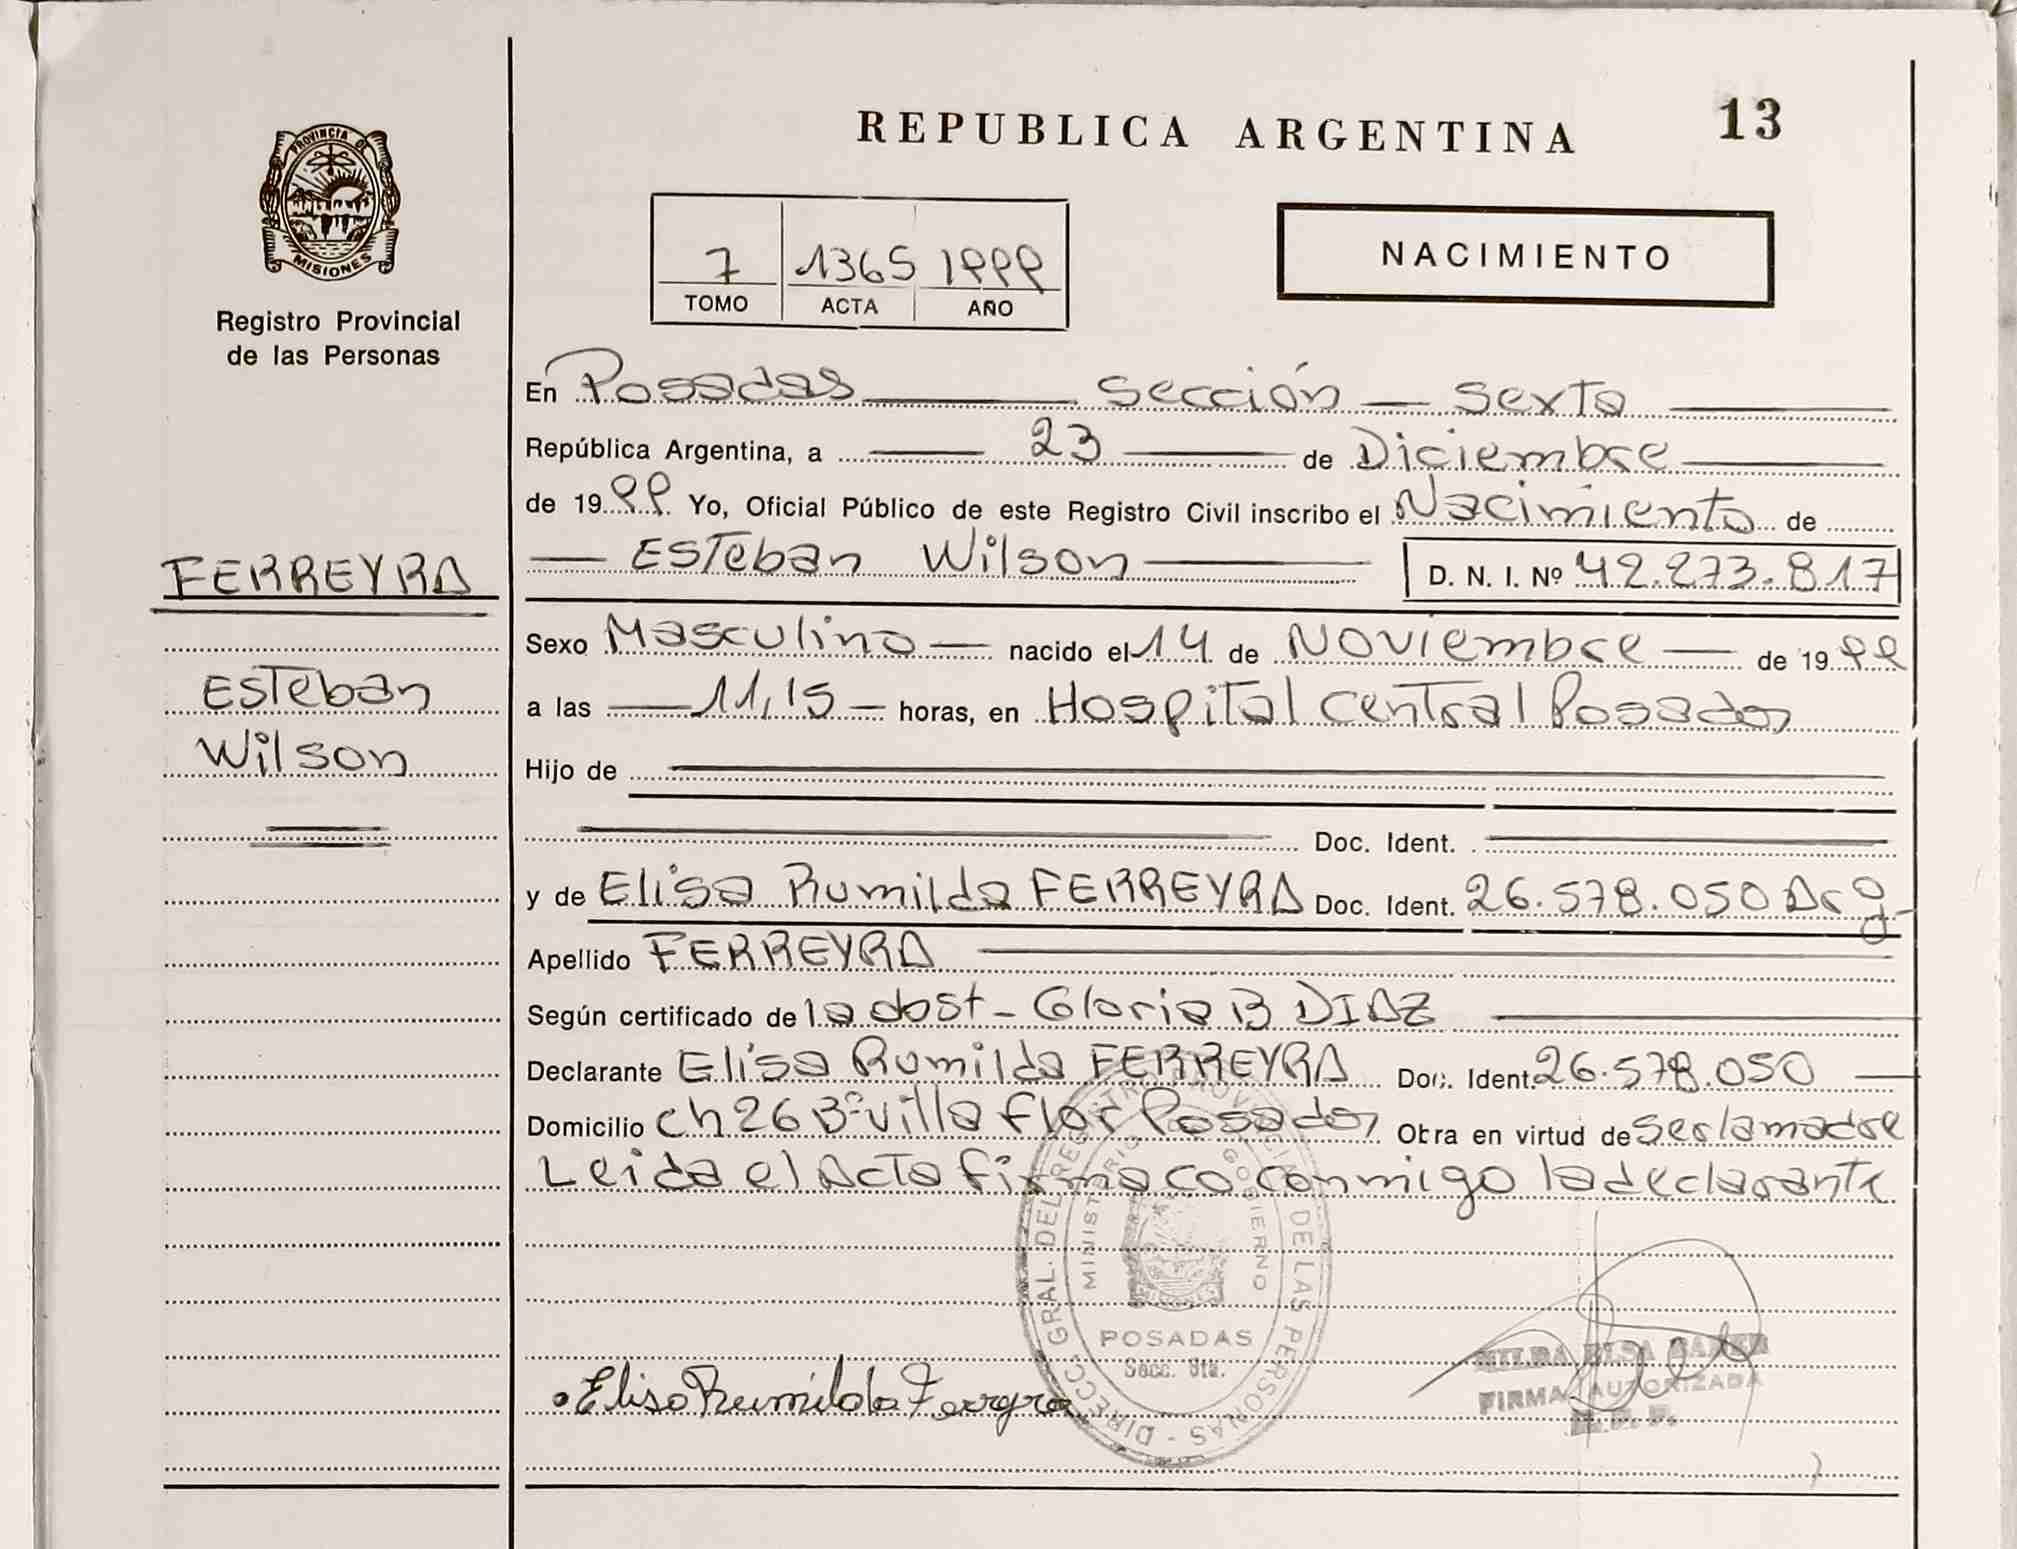 REPUBLICA ARGENTINA 13
PROVINCIA DE
MISIONES
Registro Provincial
de las Personas
7 1365 1999
TOMO ACTA AÑO
NACIMIENTO
En Posadas Sección Sexta
República Argentina, a 23 de Diciembre
de 1999 Yo, Oficial Público de este Registro Civil inscribo el Nacimiento de
FERREYRA
Esteban Wilson D. N. I. Nº 42.273.817
Sexo Masculino nacido el 14 de Noviembre de 1999
Esteban
a las 11,15 horas, en Hospital Central Posadas
Wilson
Hijo de
Doc. Ident.
y de Elisa Rumilda FERREYRA Doc. Ident. 26.578.050 Arg
Apellido FERREYRA
Según certificado de la obst - Gloria B DIAZ
Declarante Elisa Rumilda FERREYRA Doc. Ident. 26.578.050
Domicilio ch 26 Bº Villa Flor Posadas Obra en virtud de ser la madre
Leida el Acta firma co conmigo la declarante
DIRECC. GRAL. DEL REGISTRO PROVINCIAL DE LAS PERSONAS
MINISTERIO GOBIERNO
POSADAS
Secc. 6ta.
Elisa Rumilda Ferreyra
FIRMA AUTORIZADA